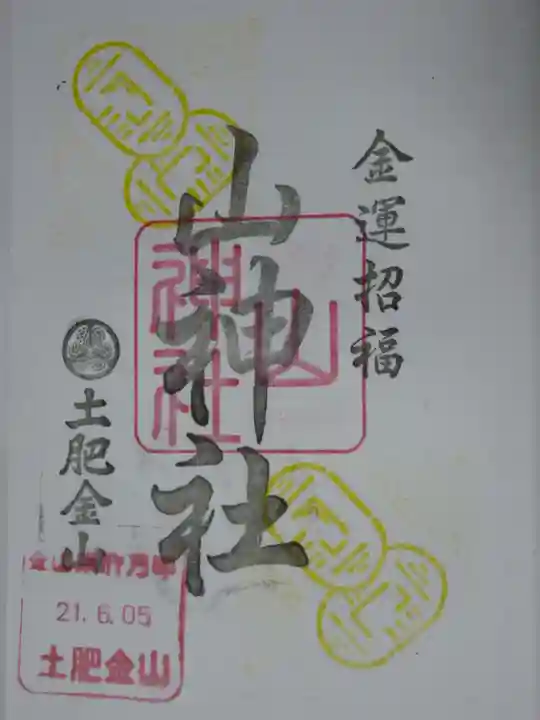 金運招福
山神社
山神社
土肥金山
21.6.05
土肥金山